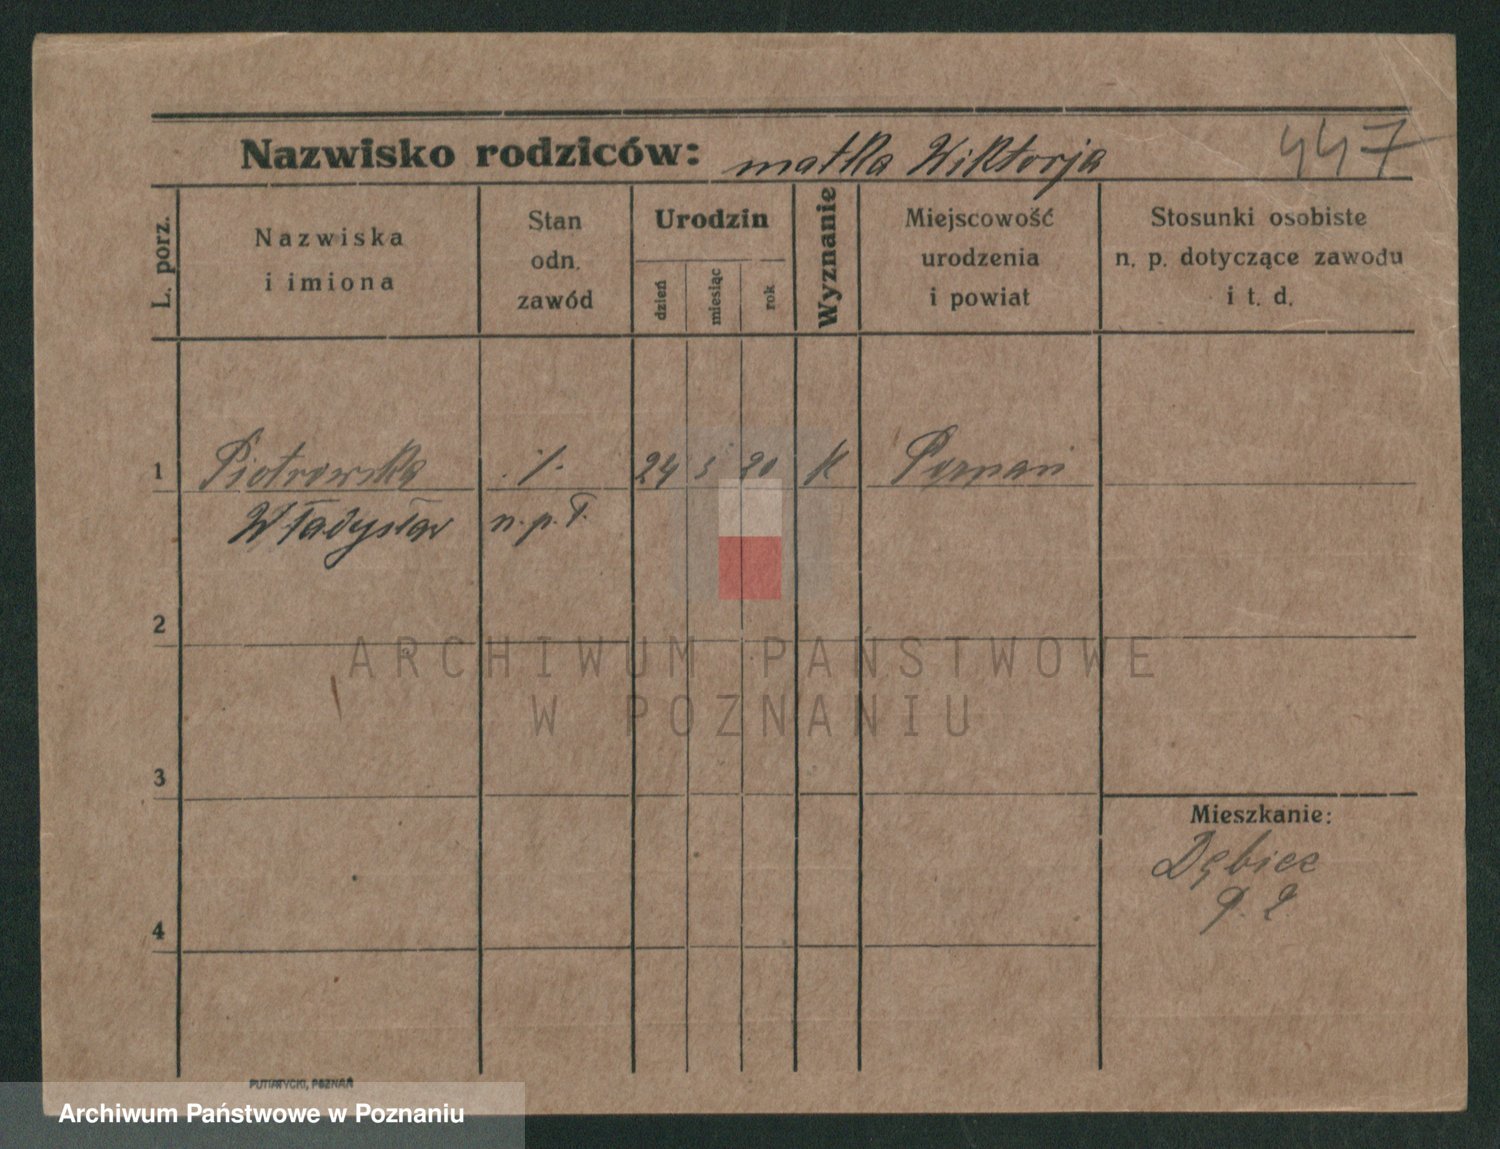 Nazwisko rodziców: matka Wiktorja 447
L. porz.
Nazwiska
i imiona
Stan
odn.
zawód
Urodzin
dzień
miesiąc
rok
Wyznanie
Miejscowość
urodzenia
i powiat
Stosunki osobiste
n. p. dotyczące zawodu
i t. d.
1 Piotrowska ./. 24 5 20 K Poznań
Władysław n. p. T.
2
ARCHIWUM PAŃSTWOWE
W POZNANIU
3
Mieszkanie:
Dębiec
4
PUTIATYCKI, POZNAŃ
Archiwum Państwowe w Poznaniu